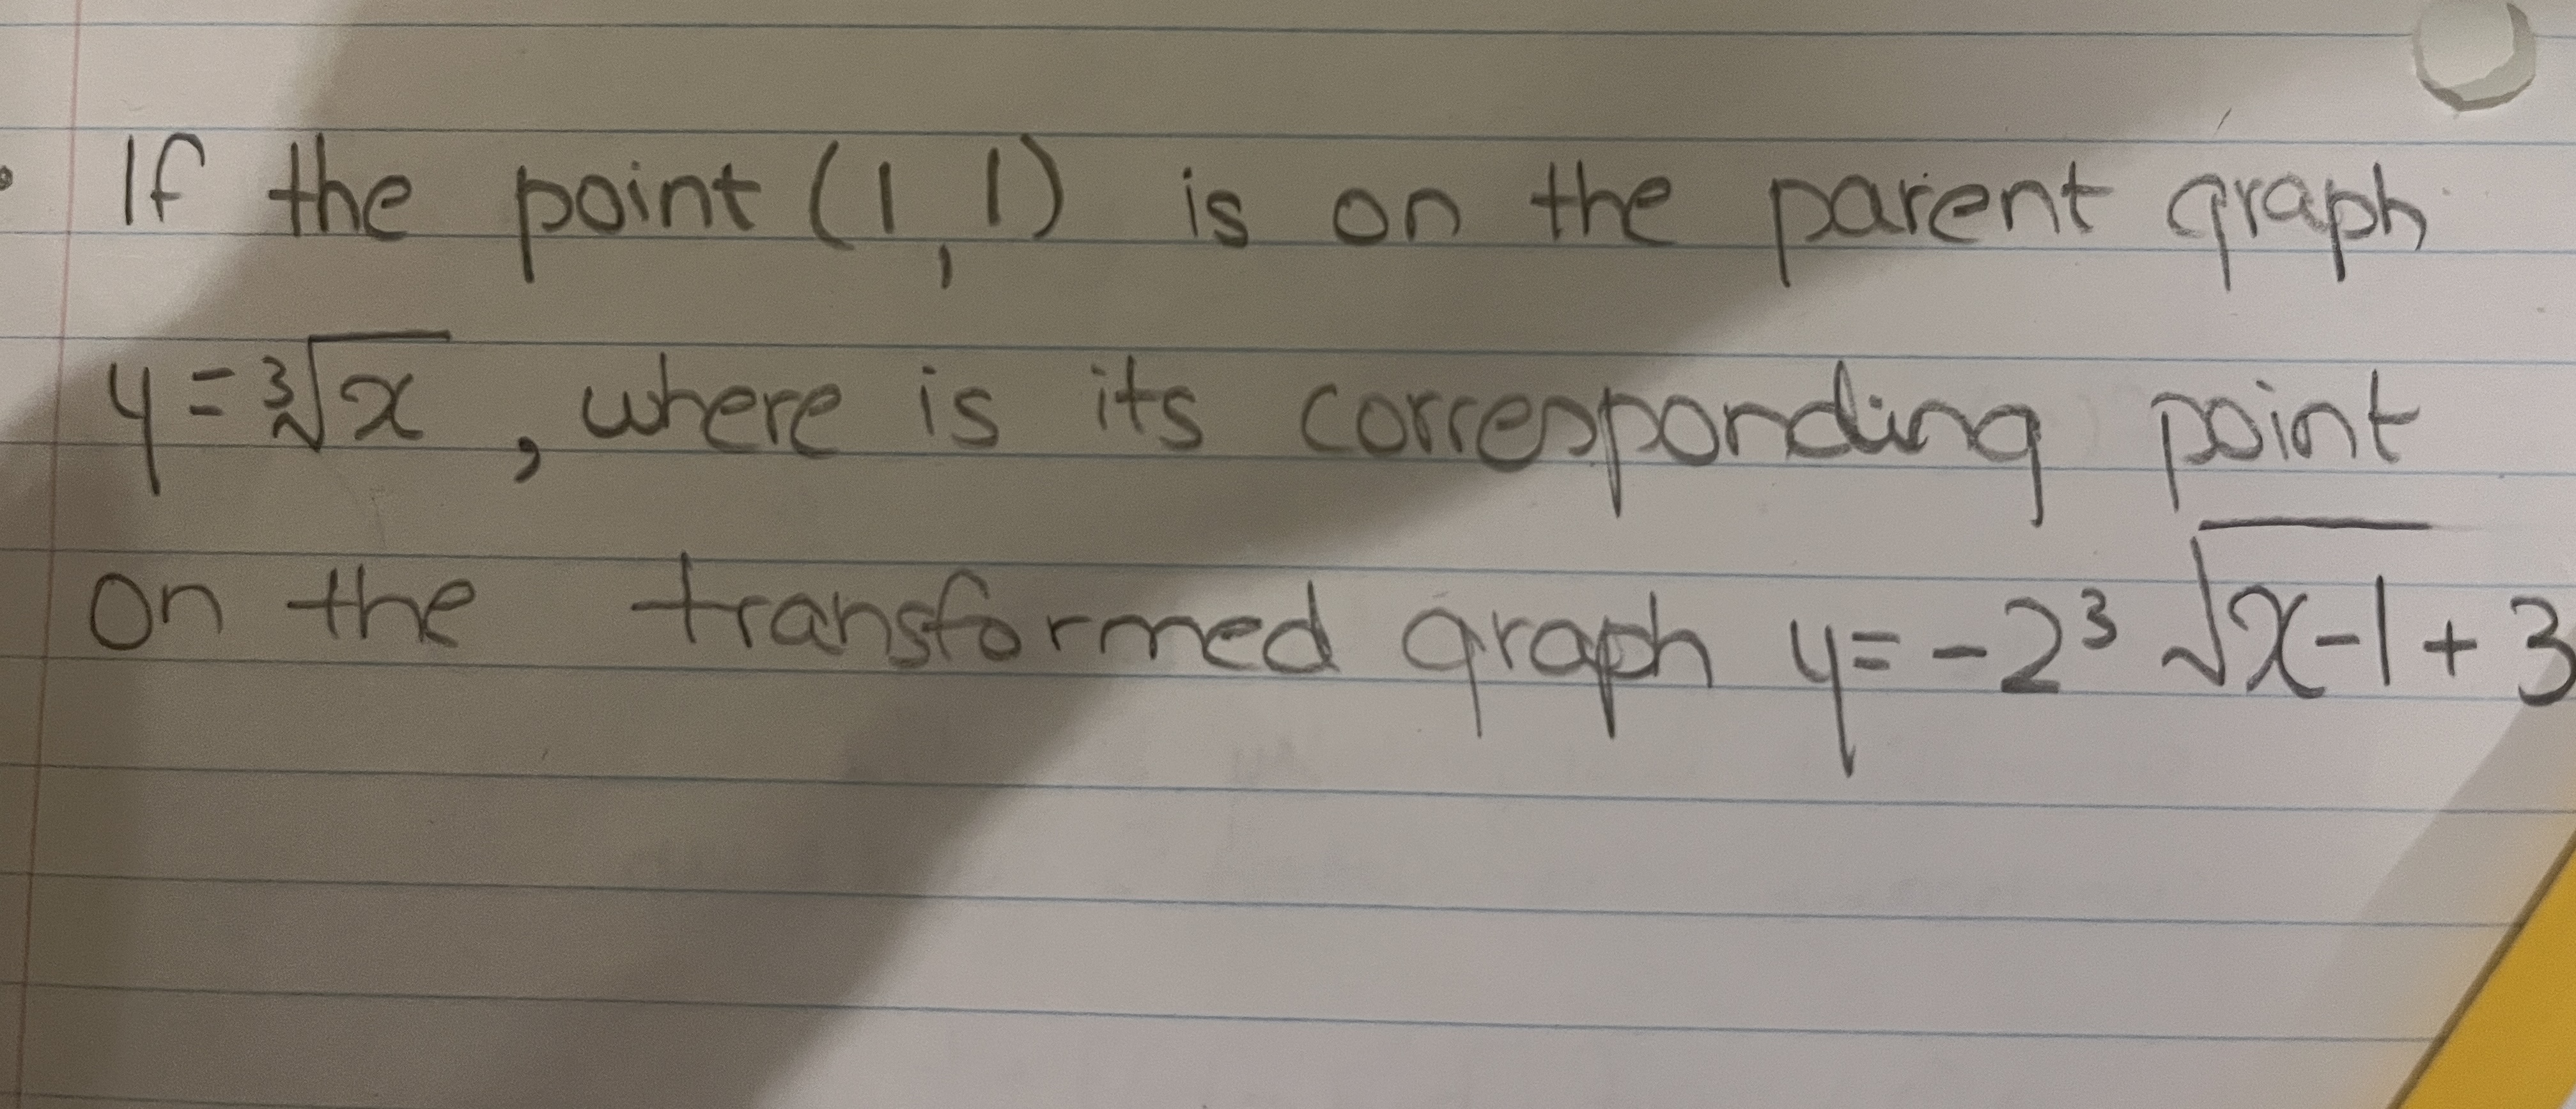 If the point (1,1) is on the parent graph
y = ∛x , where is its corresponding point
on the transformed graph y = -2³√x-1 + 3